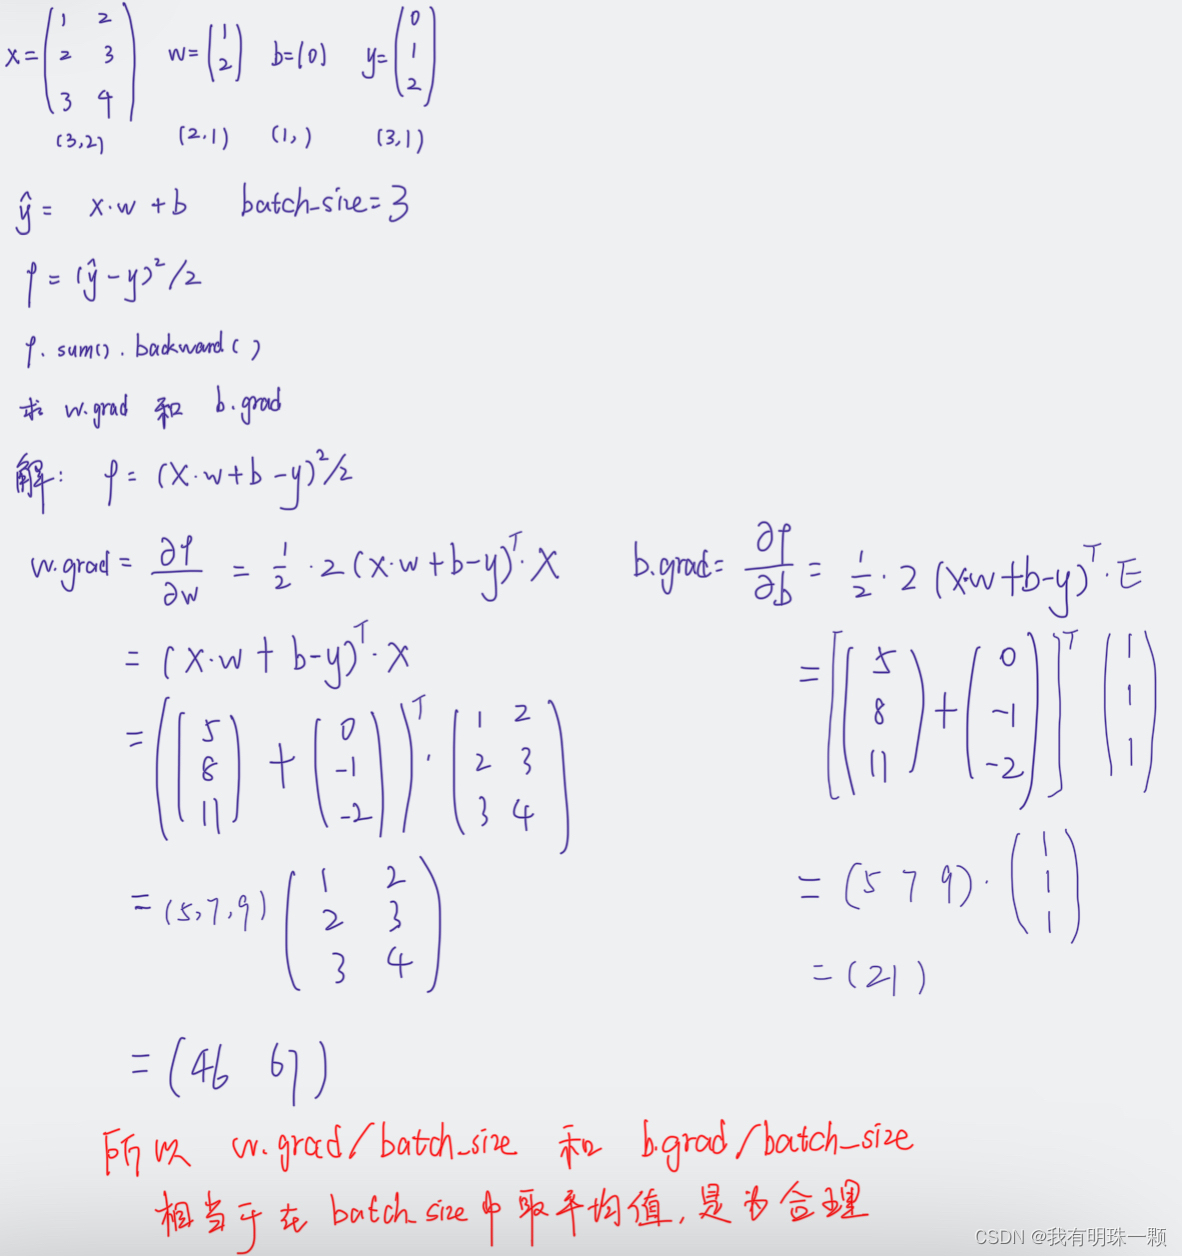 X = ( 1 2 ; 2 3 ; 3 4 )  w = ( 1 ; 2 )  b = (0)  y = ( 0 ; 1 ; 2 )
(3,2)  (2,1)  (1, )  (3,1)
ŷ = X·w + b  batch_size = 3
ℓ = (ŷ - y)²/2
ℓ. sum(). backward( )
求 w.grad 和 b.grad
解: ℓ = (X·w + b - y)²/2
w.grad = ∂ℓ/∂w = 1/2 · 2 (X·w + b - y)ᵀ · X
= (X·w + b - y)ᵀ · X
= ( ( 5 ; 8 ; 11 ) + ( 0 ; -1 ; -2 ) )ᵀ · ( 1 2 ; 2 3 ; 3 4 )
= (5,7,9) ( 1 2 ; 2 3 ; 3 4 )
= (46 67)
b.grad = ∂ℓ/∂b = 1/2 · 2 (X·w + b - y)ᵀ · E
= [ ( 5 ; 8 ; 11 ) + ( 0 ; -1 ; -2 ) ]ᵀ ( 1 ; 1 ; 1 )
= (5 7 9) · ( 1 ; 1 ; 1 )
= (21)
所以 w.grad/batch_size 和 b.grad/batch_size
相当于在 batch_size 中取平均值, 是为合理
CSDN @我有明珠一颗